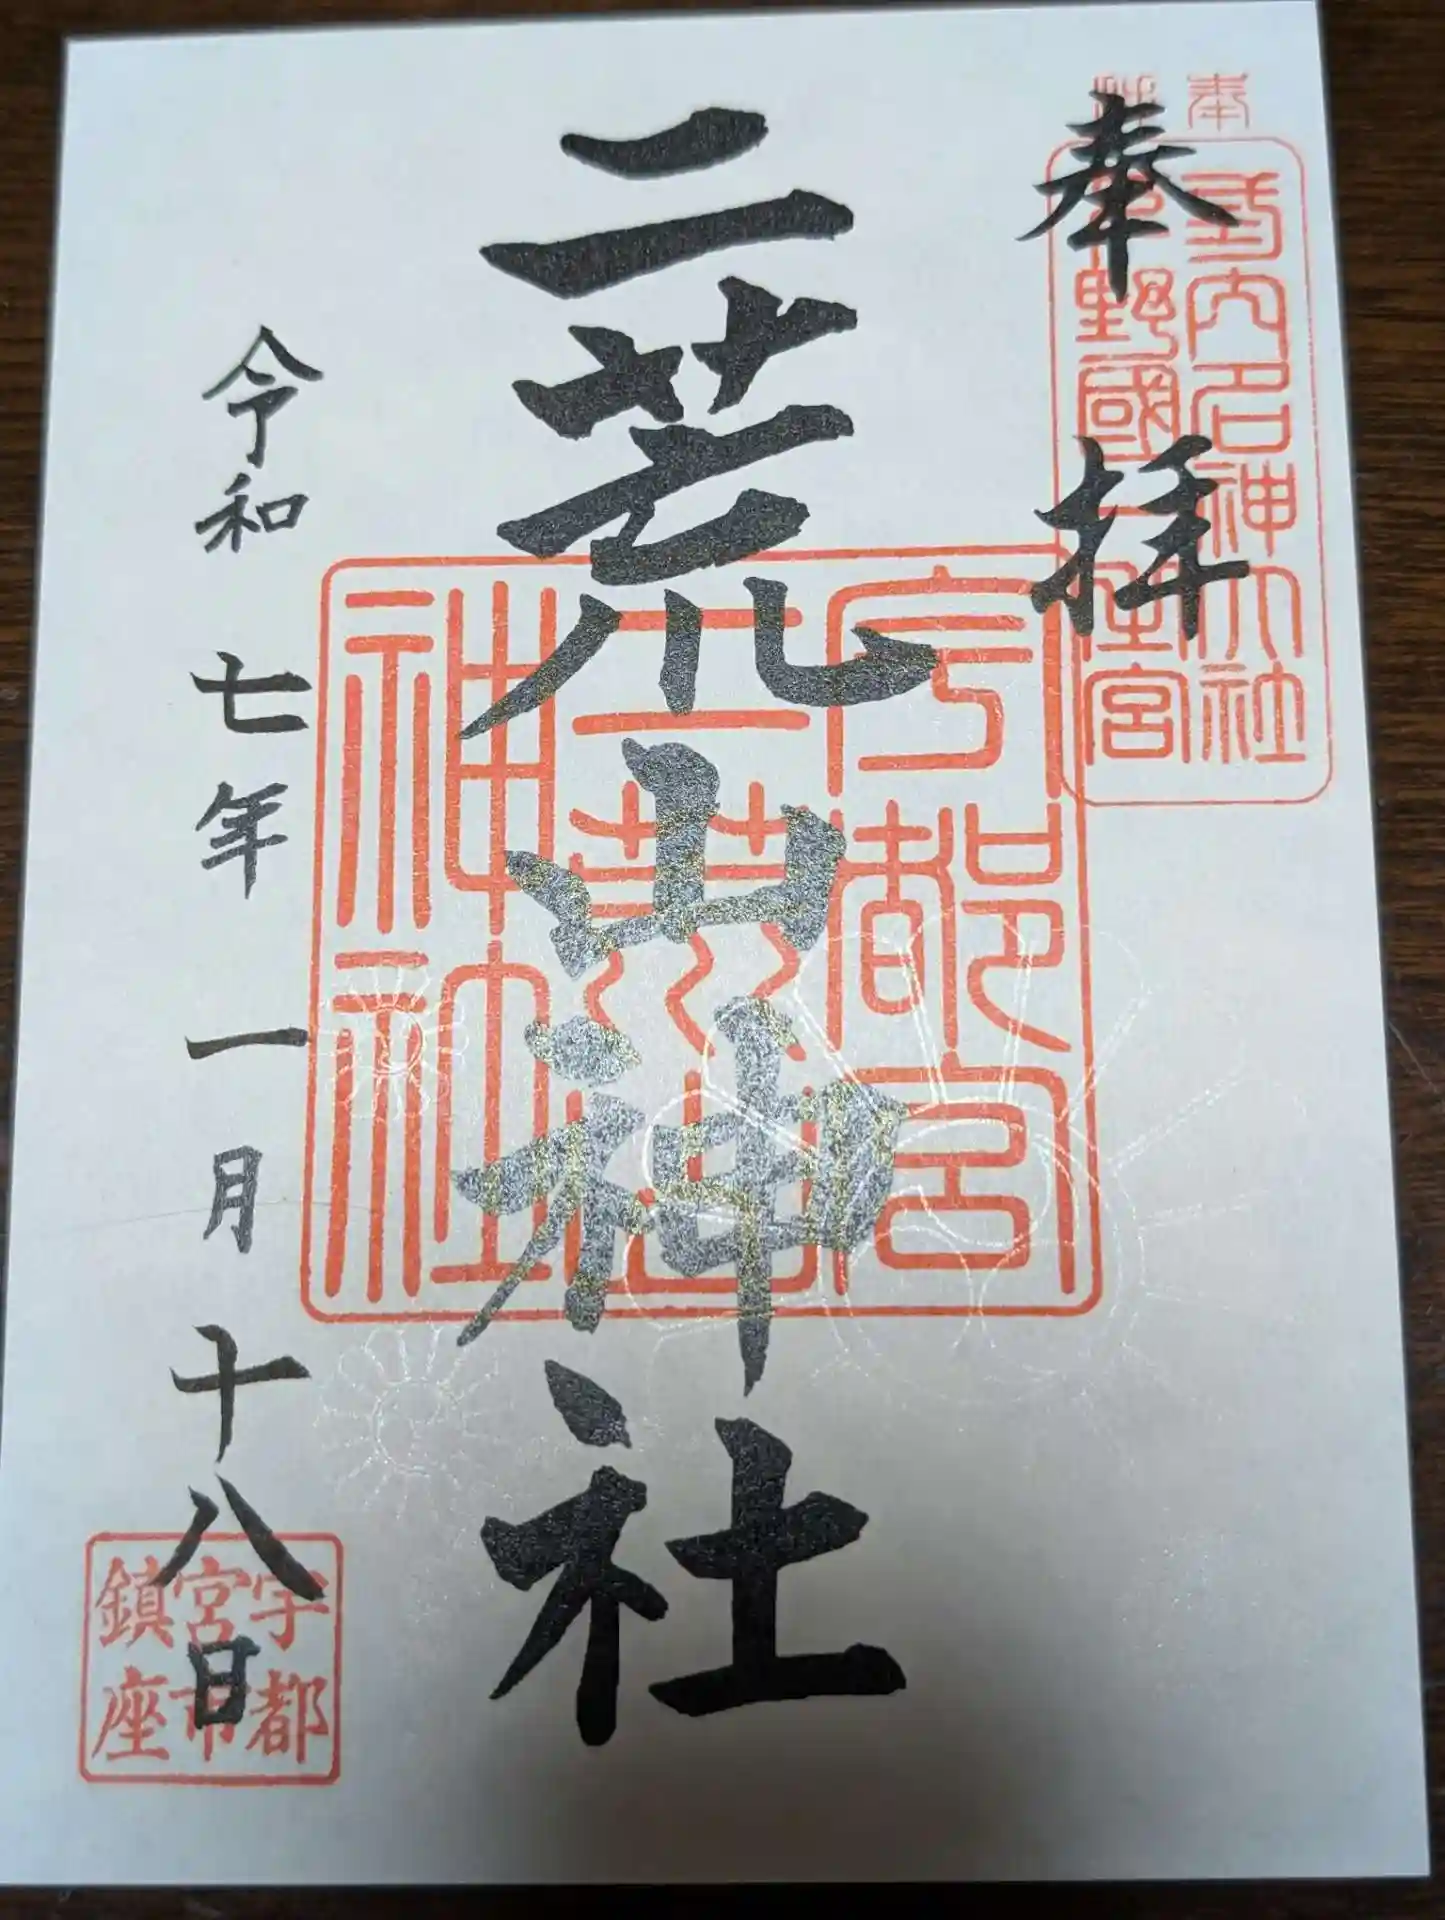 奉拝
式内名神大社
下野國一之宮
奉拝
二荒山神社
宇都宮
二荒山
神社
令和七年一月十八日
宇都
宮市
鎮座